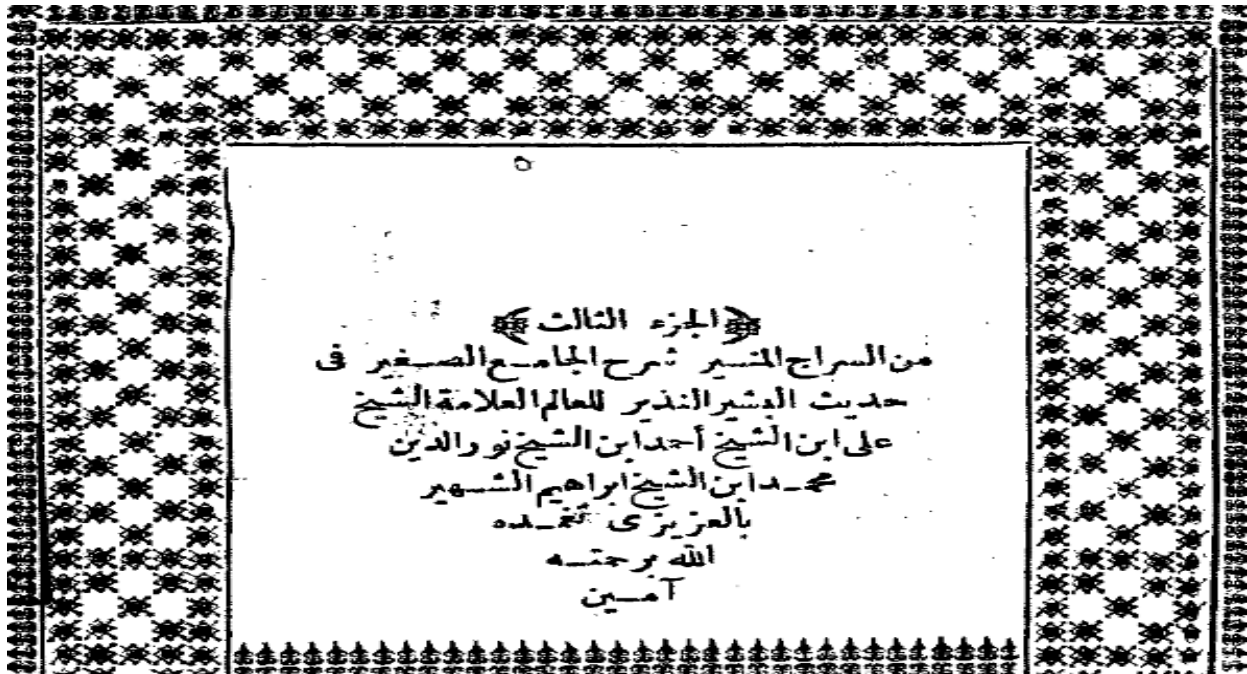 ﴿الجزء الثالث﴾
من السراج المنير شرح الجامع الصغير فى
حديث البشير النذير للعالم العلامة الشيخ
على ابن الشيخ أحمد ابن الشيخ نور الدين
محمد ابن الشيخ ابراهيم الشهير
بالعزيزى تغمده
الله برحمته
آمين